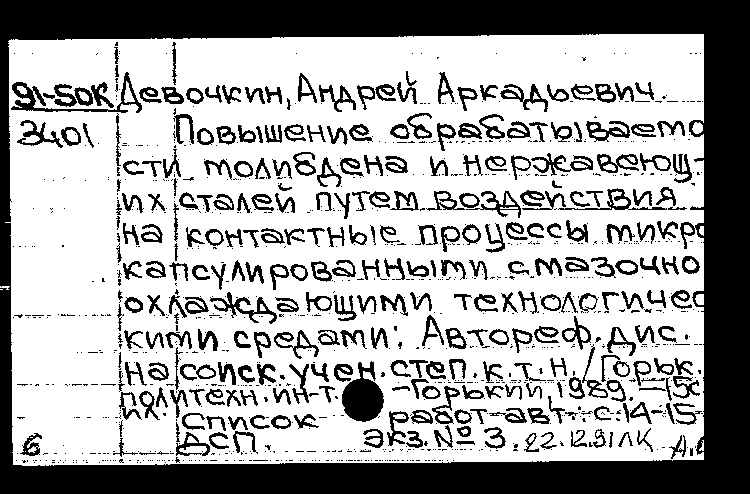 91-50К Девочкин, Андрей Аркадьевич.
3401 Повышение обрабатываемо
сти молибдена и нержавеющ-
их сталей путем воздействия
на контактные процессы микро
капсулированными смазочно
охлаждающими технологичес
кими средами: Автореф. дис.
на соиск. учен. степ. к.т.н. / Горьк.
политехн. ин-т. -Горький, 1989. -15с
ил. Список работ авт.: с.14-15
6 ДСП. Экз. № 3. 22.12.91 ЛК